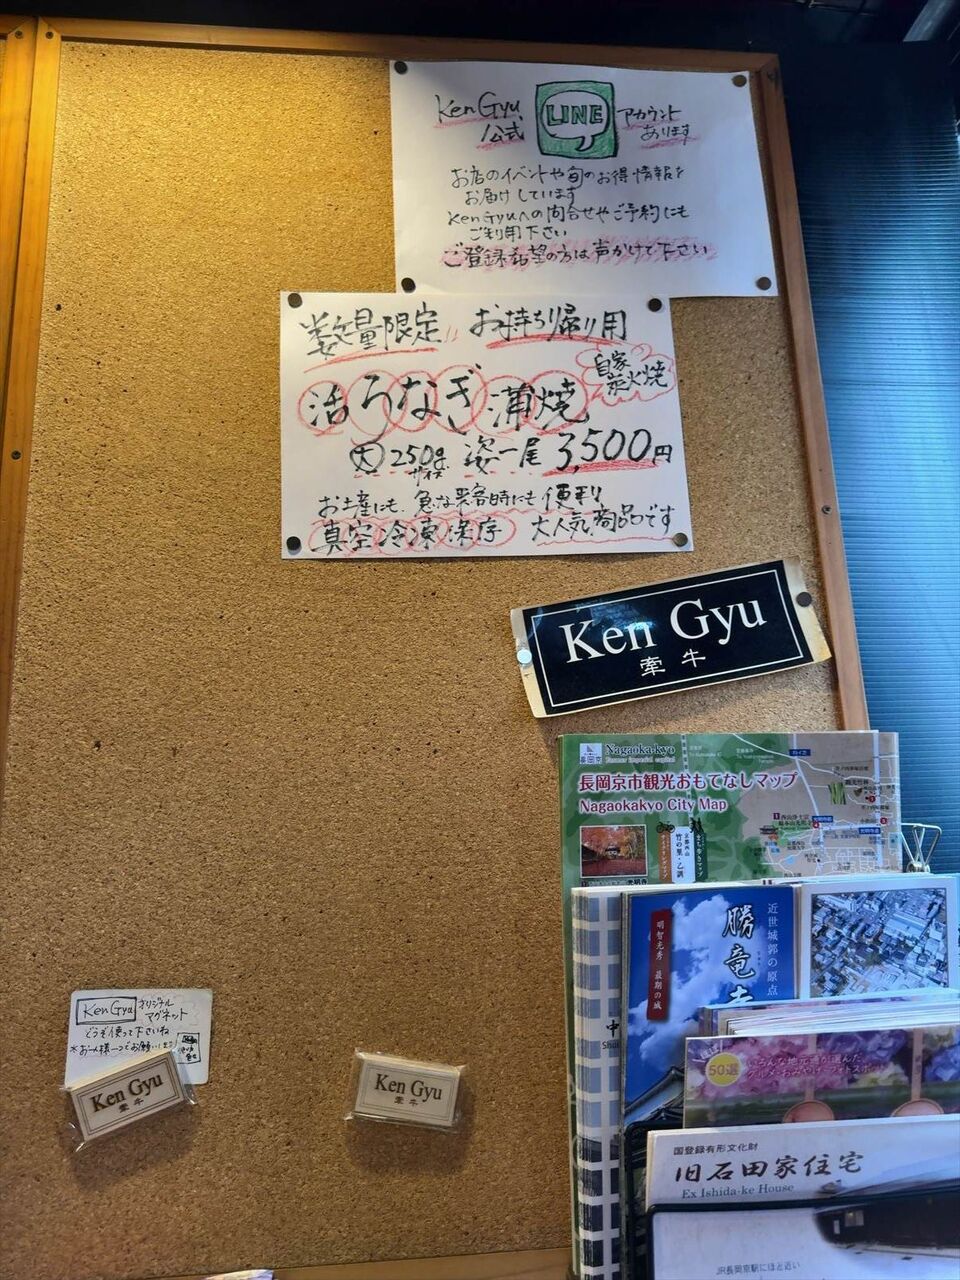 Ken Gyu
公式
LINE
アカウント
あります
お店のイベントや旬のお得情報を
お届けしています
Ken Gyuへの問合せやご予約にも
ご利用下さい
ご登録希望の方は声かけて下さい
数量限定!! お持ち帰り用
自家
炭火焼
活うなぎ蒲焼
大 250g
サイズ
姿一尾 3,500円
お土産にも、急な来客時にも便利
真空冷凍保存 大人気商品です
Ken Gyu
牽牛
長岡京
Nagaoka-kyo
Former imperial capital
長岡京市観光おもてなしマップ
Nagaokakyo City Map
京都西山
竹の里・乙訓
近世城郭の原点
勝竜寺
明智光秀 最期の城
50選
みんな地元通が選んだ
グルメ・おみやげ・フォトスポット
国登録有形文化財
旧石田家住宅
Ex Ishida-ke House
JR長岡京駅にほど近い
Ken Gyu オリジナル
マグネット
どうぞ使って下さいね
*お一人様一つでお願いします
Ken Gyu
牽牛
Ken Gyu
牽牛